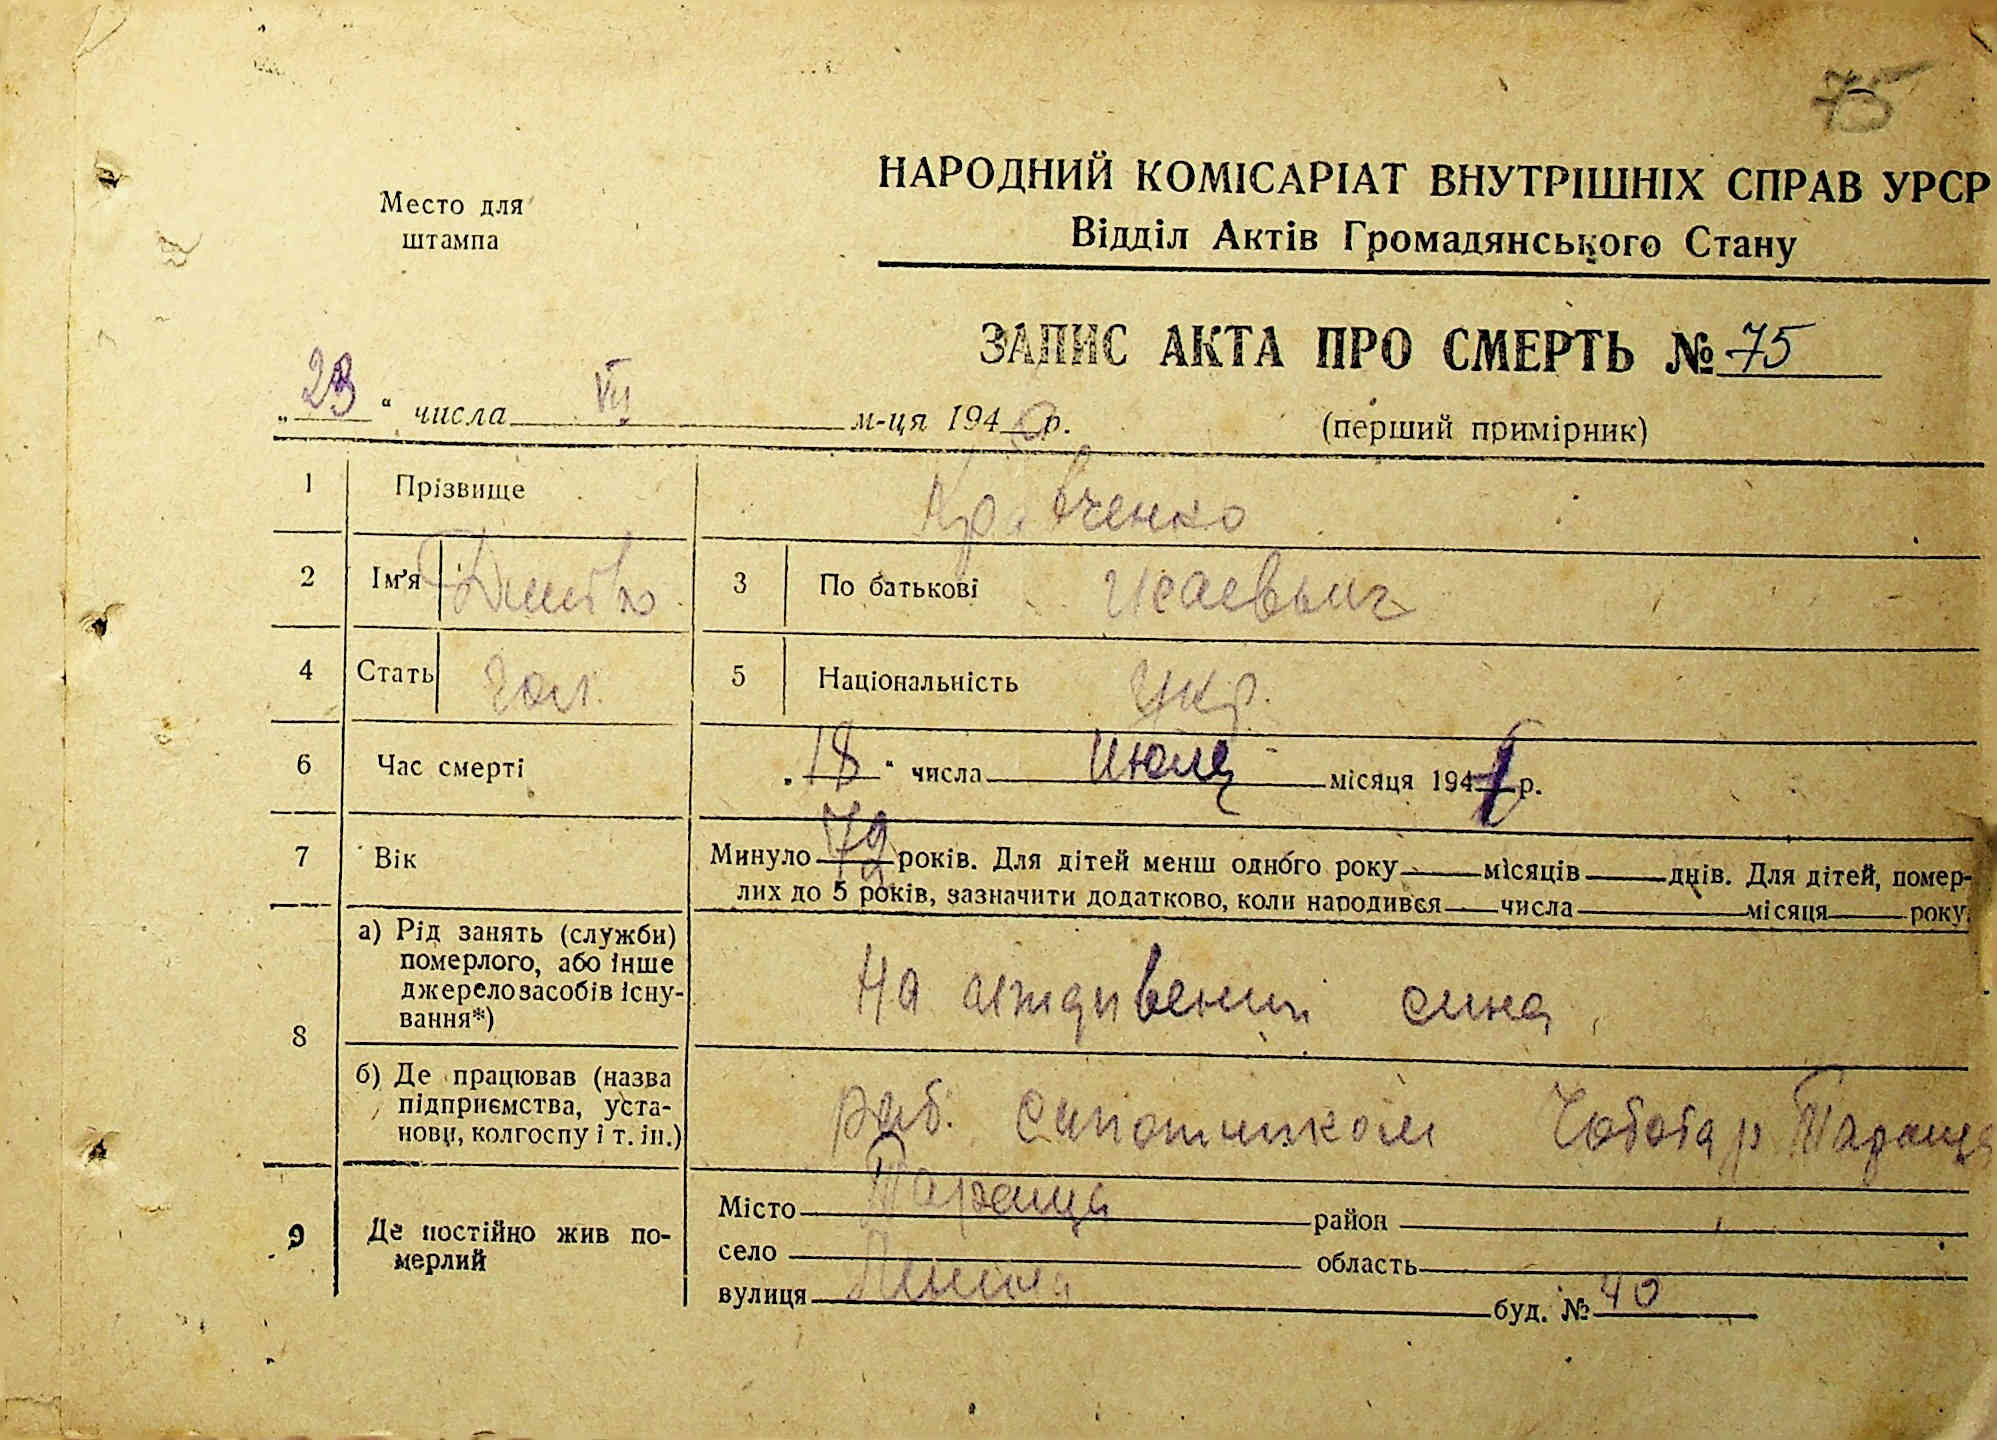 75
НАРОДНИЙ КОМІСАРІАТ ВНУТРІШНІХ СПРАВ УРСР
Место для
штампа
Відділ Актів Громадянського Стану
ЗАПИС АКТА ПРО СМЕРТЬ № 75
„23“ числа VII м-ця 194 р.
(перший примірник)
1 Прізвище Кравченко
2 Ім'я 3 По батькові Исаевыч
4 Стать чол. 5 Національність Укр.
6 Час смерті „18“ числа Июля місяця 194 р.
7 Вік Минуло 79 років. Для дітей менш одного року місяців днів. Для дітей, помер-
лих до 5 років, зазначити додатково, коли народився числа місяця року.
8 а) Рід занять (служби)
померлого, або інше
джерело засобів існу-
вання*)
На иждивении сина
б) Де працював (назва
підприємства, уста-
нови, колгоспу і т. ін.)
раб. сапожником Чоботар Тараща
9 Де постійно жив по-
мерлий
Місто Тараща район
село область
вулиця Леніна буд. № 40